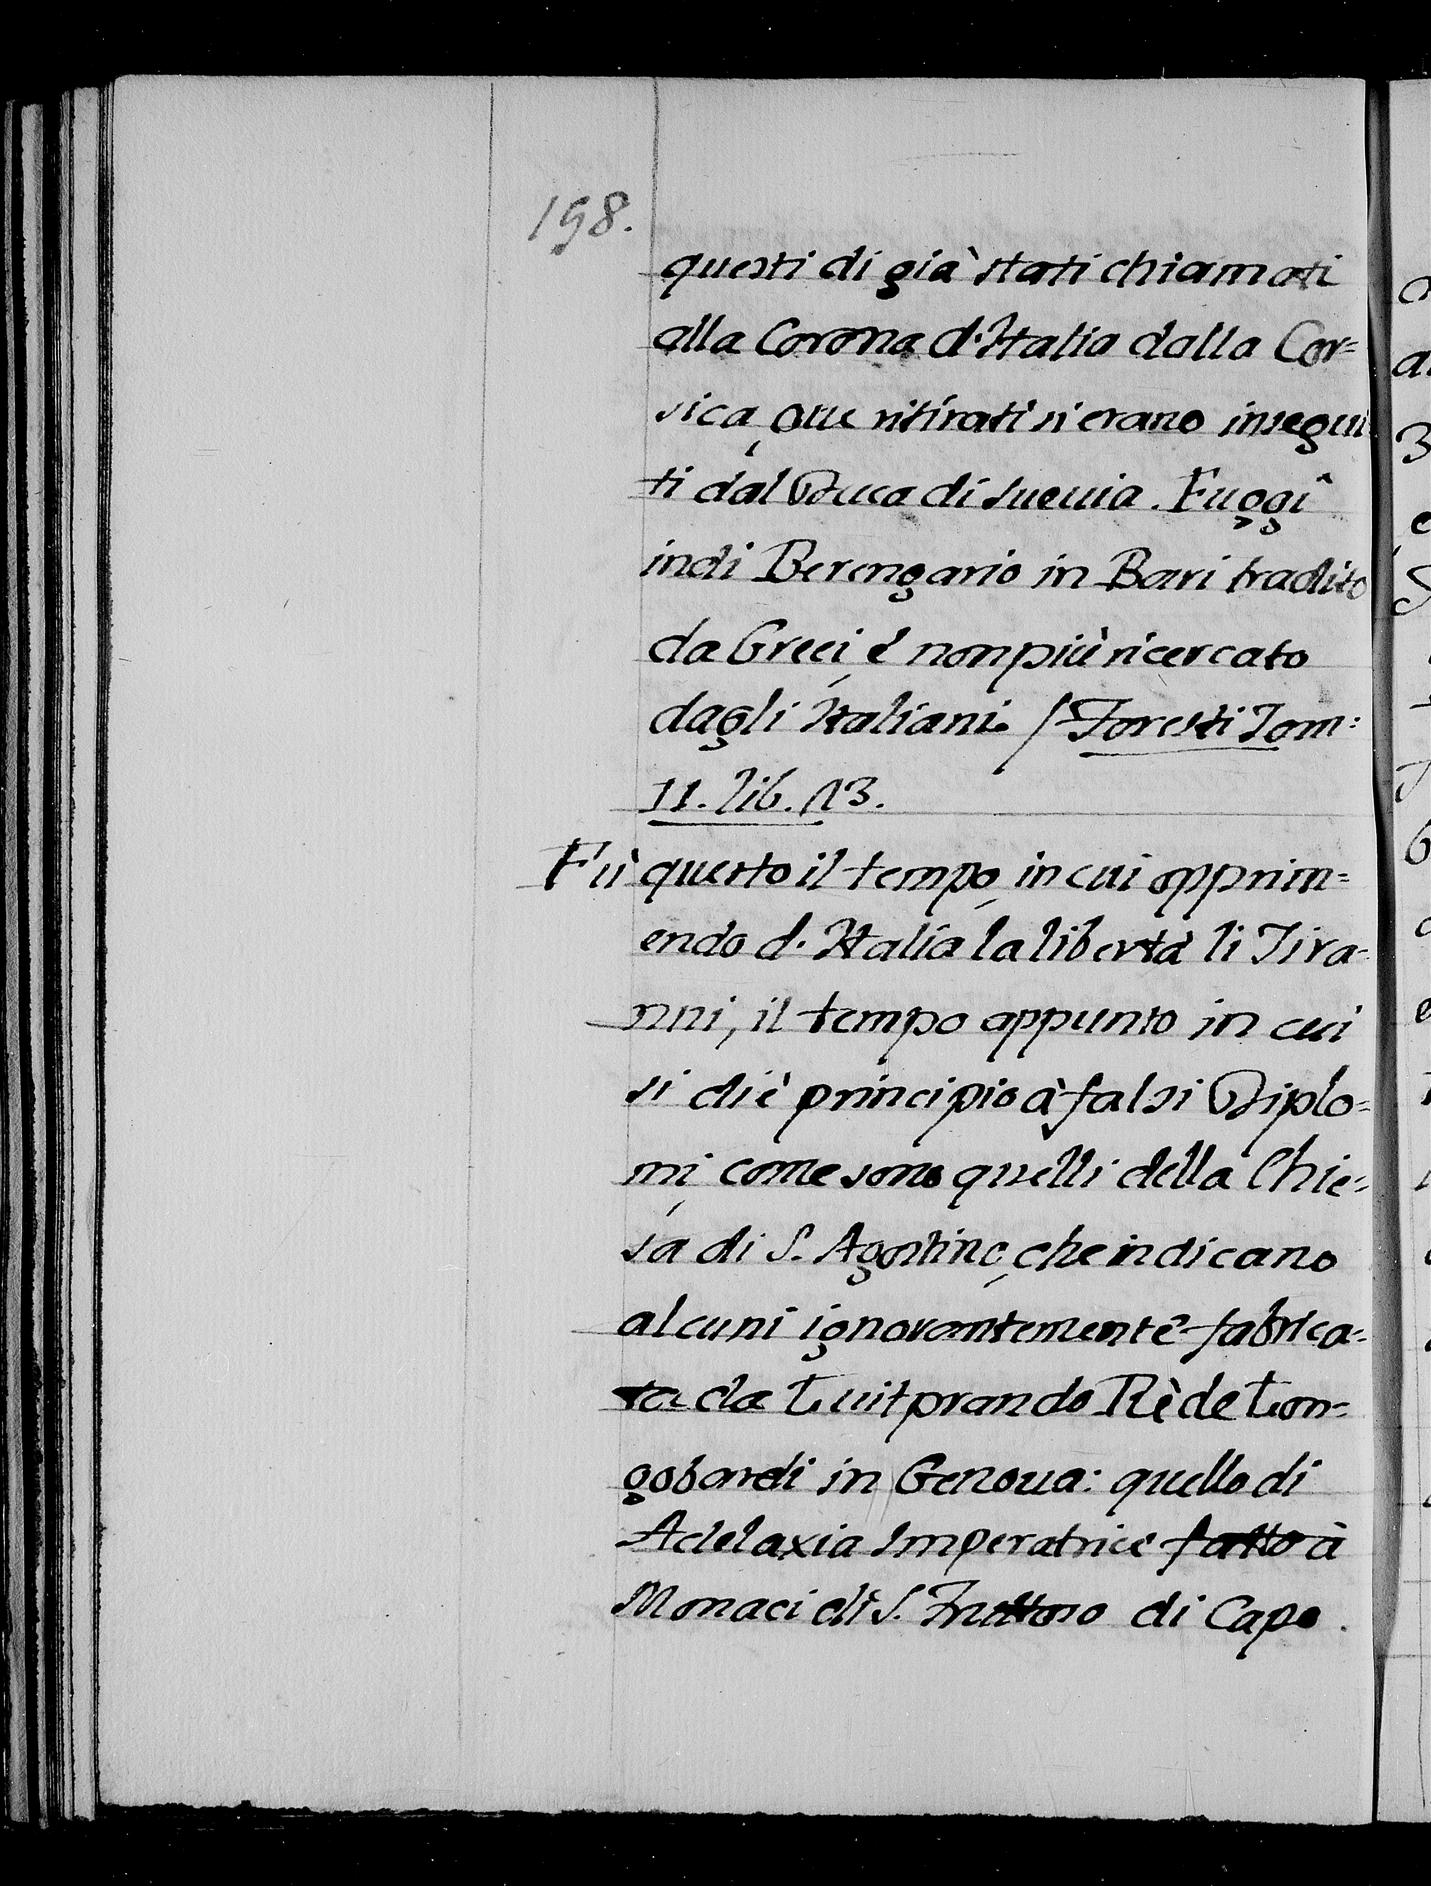 198.
questi di già stati chiamati
alla Corona d'Italia dalla Cor=
sica, oue ritirati si erano insegui
ti dal Duca di Sueuia. Fuggì
indi Berengario in Bari tradito
da Greci, è non più ricercato
dagli Italiani. / Foresti Tom:
11. lib. 13.
Fù questo il tempo, in cui opprim=
endo d'Italia la libertà li Tira=
nni, il tempo appunto in cui
si diè principio à falsi Diplo=
mi, come sono quelli della Chie=
sa di S. Agostino, che indicano
alcuni ignorantemente fabrica=
ta da Luitprando Rè de Lon=
gobardi in Genoua: quello di
Adelaxia Imperatrice fatto à
Monaci di S. Fruttoso di Capo